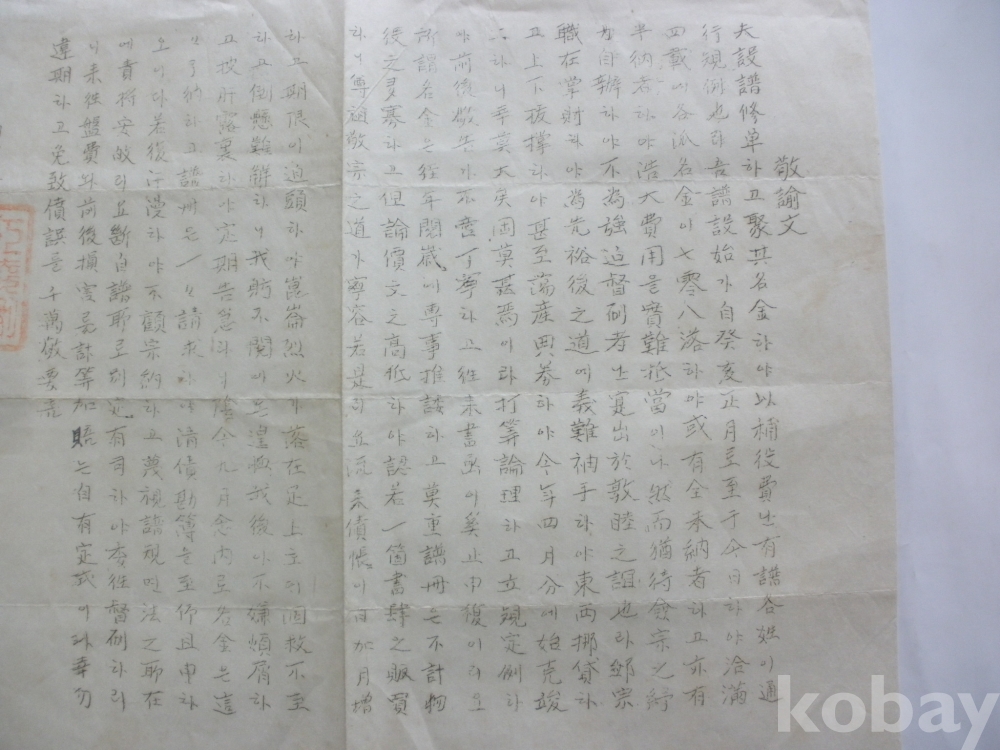 敬諭文
夫設譜修單하고聚其名金하야以補役費난有譜各姓이通
行規例也라吾譜設始가自癸亥正月로至于今日하야洽滿
四載에各派名金이七零八落하야或有全未納者하고亦有
半納者하야浩大費用을實難抵當이나然而猶待僉宗之
自辦하야不為強迫督例者난寔出於敦睦之誼也라鄙宗
職在掌財하야為先裕後之道에義難袖手하야東西挪貸하
고上下拔撑하야甚至蕩産典券하야今年四月分에始克竣
하니幸莫大矣困莫甚焉이라打筭論理하고立規定例하
야前後敬告가不啻丁寧하고往來書函이奚止申復이리요
所謂名金은經年閱歲에專事推諉하고莫重譜冊은不計物
役之多寡하고但論價文之高低하야認若一箇書肆之販買
하니尊祖敬宗之道가寧容若是리요流來債帳이日加月增
하고期限이迫頭하야崑崙烈火가落在足上호되涸救不至
하고倒懸難解하니我躬不閱에遑恤我後아不嫌煩屑하
고披肝露裏하야定期告急하니陰今九月念內로名金은這
這了納하고譜冊은一一請求하야淸債勘簿를至仰且申하
오이다若後汗漫하야不顧宗約하고蔑視譜規면法之所在
에責將安敀리요斷自譜所로別定有司하야本往督刷하리
니來往盤費와前後損害를計等加賠는自有定式이라幸勿
違期하고免致債誤를千萬敬要홈
kobay